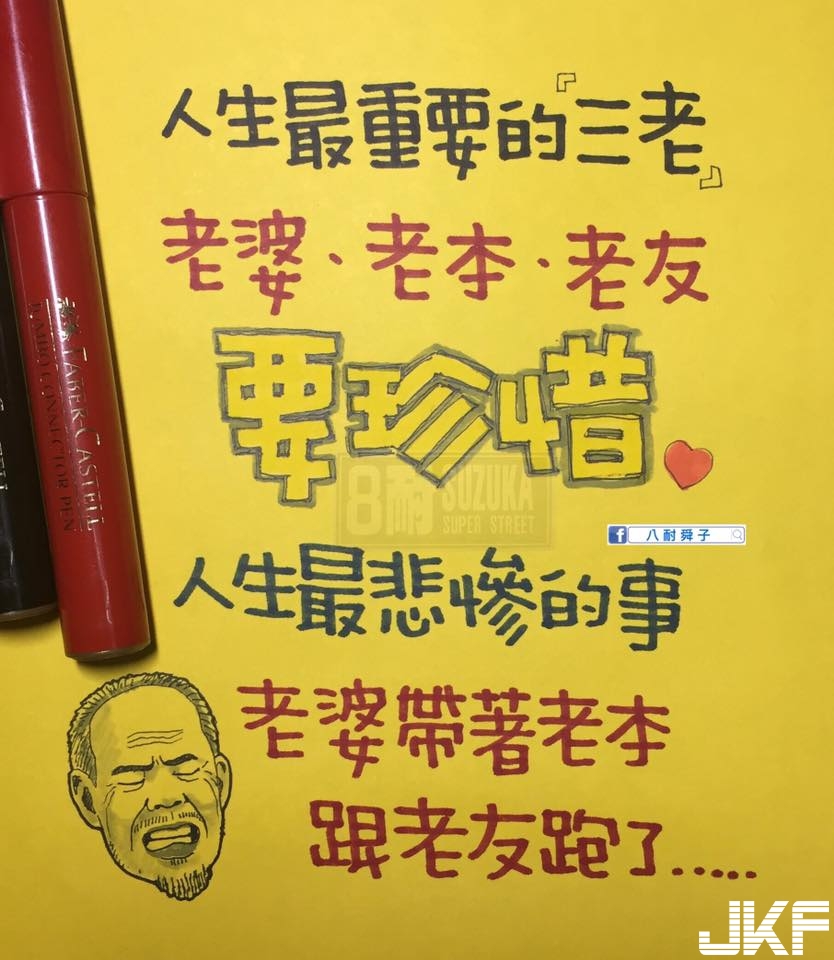 人生最重要的『三老』
老婆、老本、老友
要珍惜
8耐 SUZUKA
SUPER STREET
八耐舜子
人生最悲慘的事
老婆帶著老本
跟老友跑了.....
FABER-CASTELL
CONNECTOR PEN
JKF